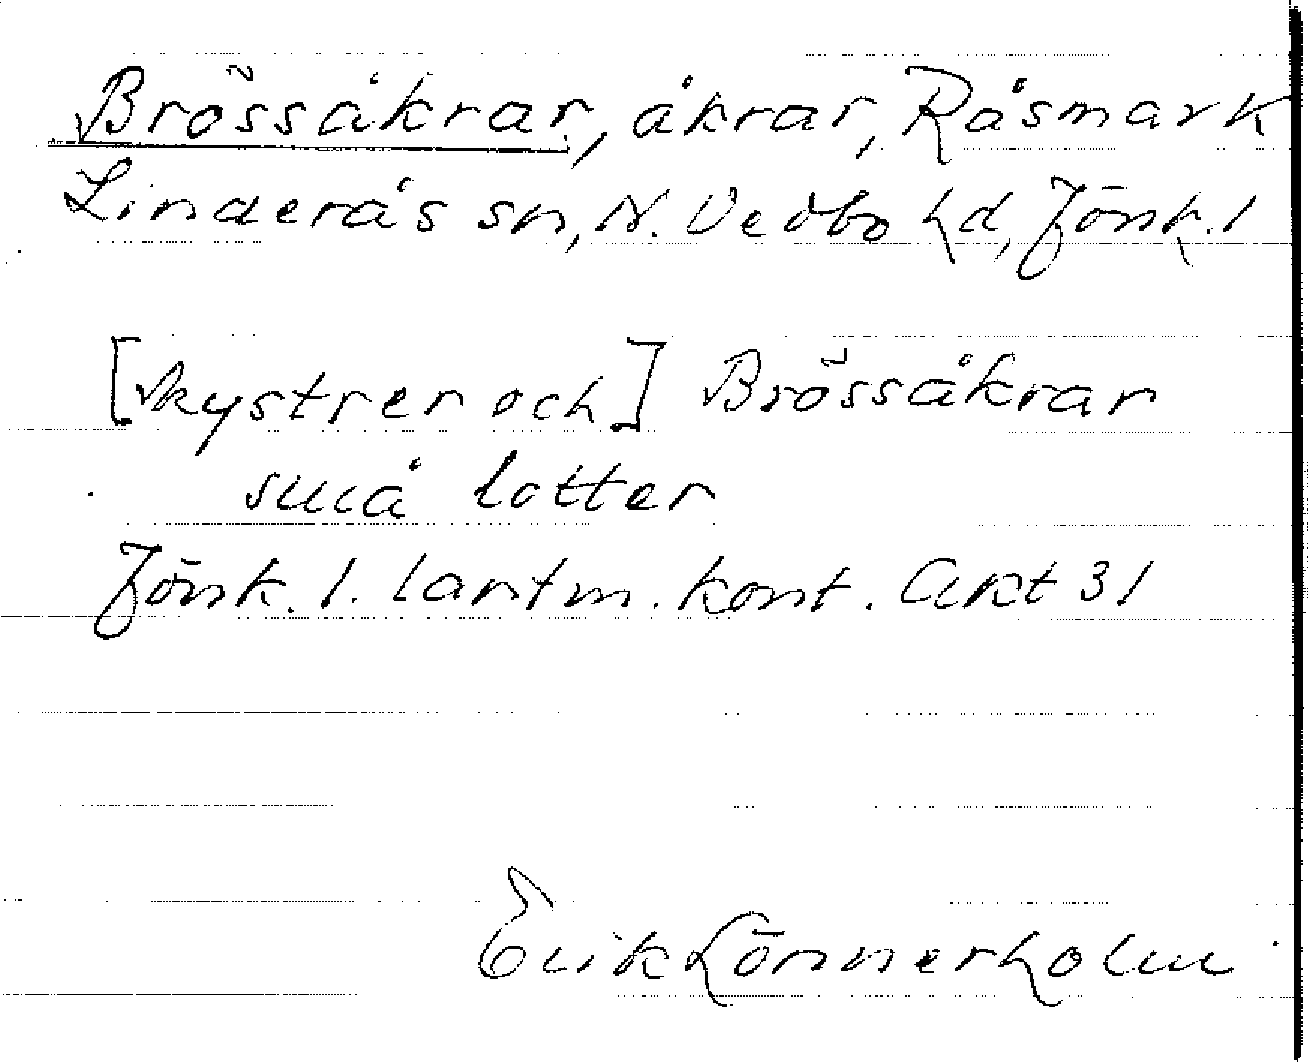 Brössåkrar, åkrar, Råsmark
Linderås sn, N. Vedbo hd, Jönk. l
[kystrer och] Brössåkrar
små lotter
Jönk. l. lantm. kont. Akt 31
Erik Lönnerholm